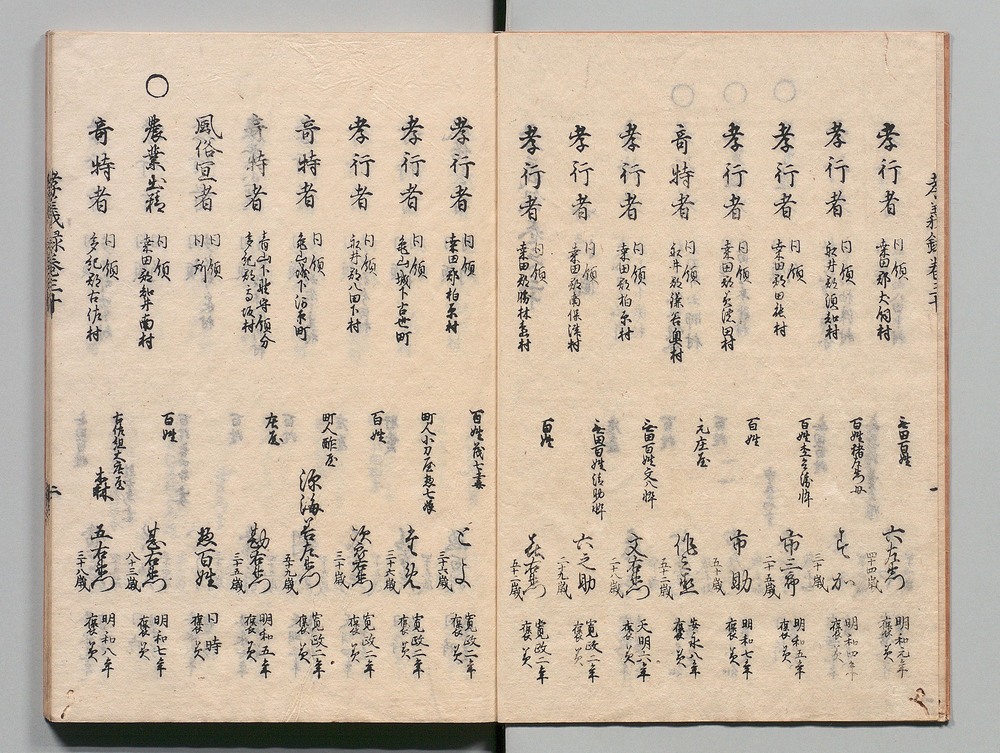 孝義録巻三十
孝行者
同領
桑田郡大飼村
無田百姓
六左衛門
四十四歳
明和元年
褒美
孝行者
同領
船井郡須知村
百姓猪左衛門母
三十歳
明和四年
褒美
孝行者
同領
桑田郡田能村
百姓杢兵衛忰
市三郎
二十五歳
明和五年
褒美
孝行者
同領
百姓
市助
五十歳
明和七年
褒美
奇特者
同領
船井郡鎌谷奥村
元庄屋
作之丞
五十二歳
安永八年
褒美
孝行者
同領
桑田郡柏原村
無田百姓文八忰
文右衛門
二十八歳
天明六年
褒美
孝行者
同領
桑田郡南保津村
無田百姓清助忰
六之助
二十九歳
寛政二年
褒美
孝行者
同領
桑田郡勝林島村
百姓
五十一歳
寛政二年
褒美
孝行者
同領
桑田郡柏原村
百姓茂七妻
とよ
三十六歳
寛政二年
褒美
孝行者
同領
亀山城下古世町
町人小刀屋
寛政二年
褒美
孝行者
同領
船井郡八田下村
百姓
次郎右衛門
三十歳
寛政二年
褒美
奇特者
同領
亀山城下河原町
町人酢屋
源海
若左衛門
五十九歳
寛政二年
褒美
奇特者
青山下野守領分
多紀郡高坂村
庄屋
勘右衛門
三十五歳
明和五年
褒美
風俗宜者
同領
同所
惣百姓
同時
褒美
○
農業出精
同領
桑田郡知井南村
百姓
甚右衛門
八十三歳
明和七年
褒美
奇特者
同領
多紀郡古佐村
古佐組大庄屋
森
五右衛門
三十八歳
明和八年
褒美
孝義録巻三十